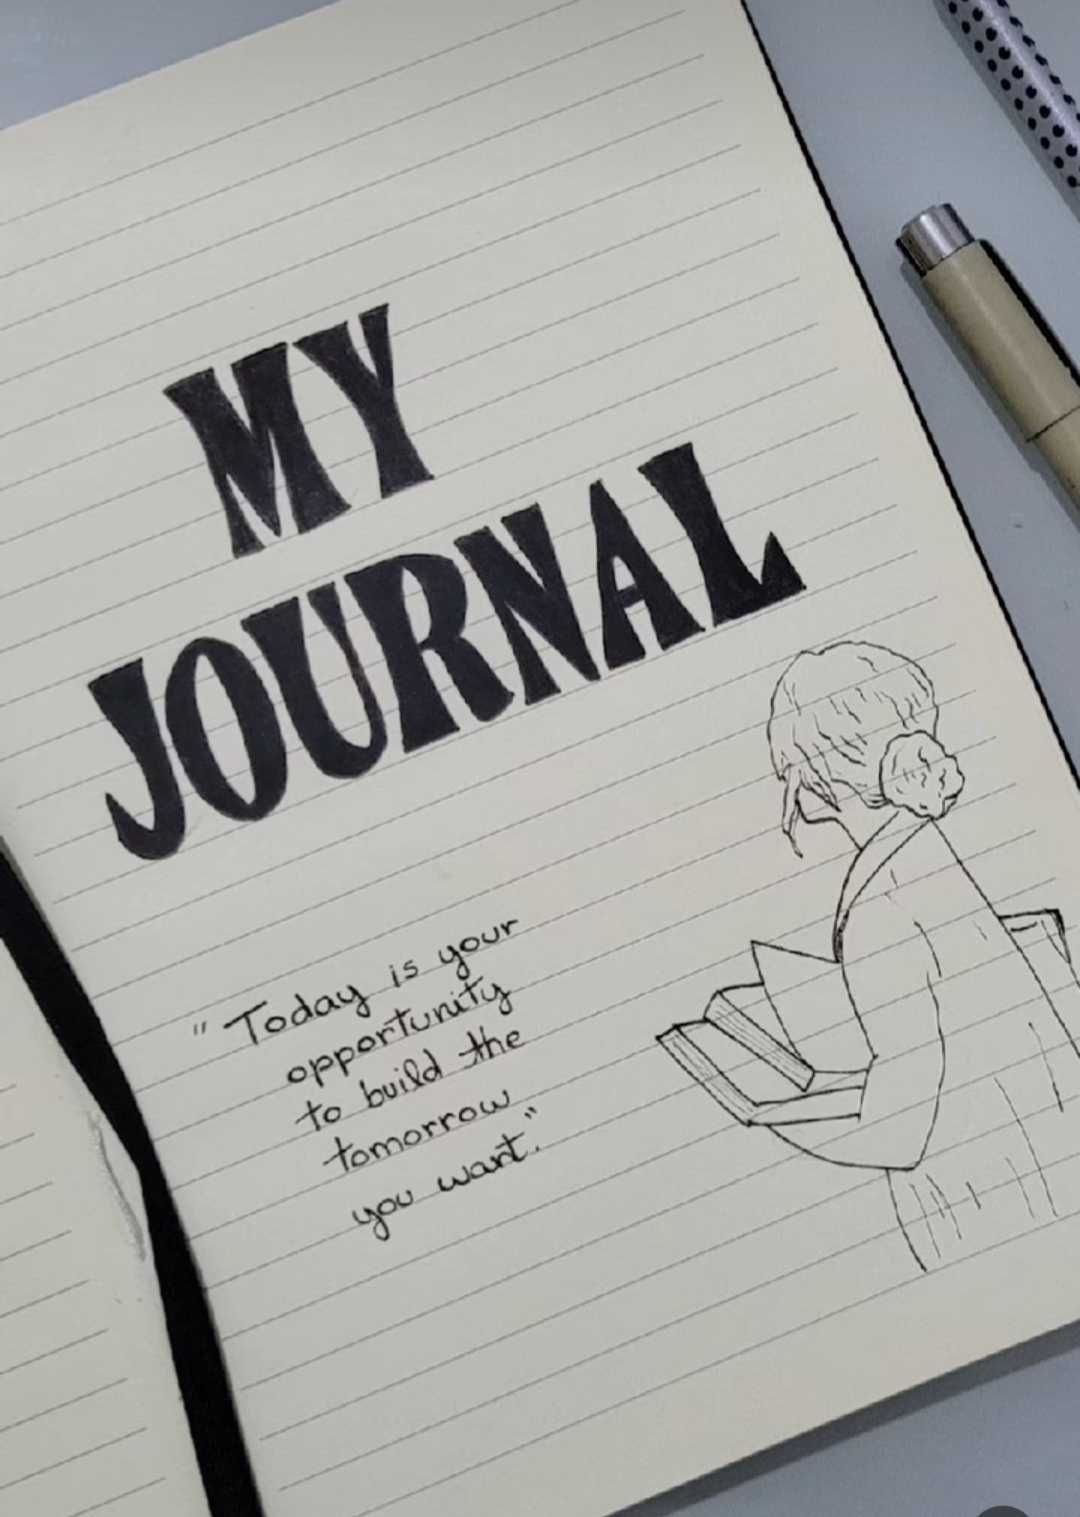 MY
JOURNAL
"Today is your
opportunity
to build the
tomorrow
you want."